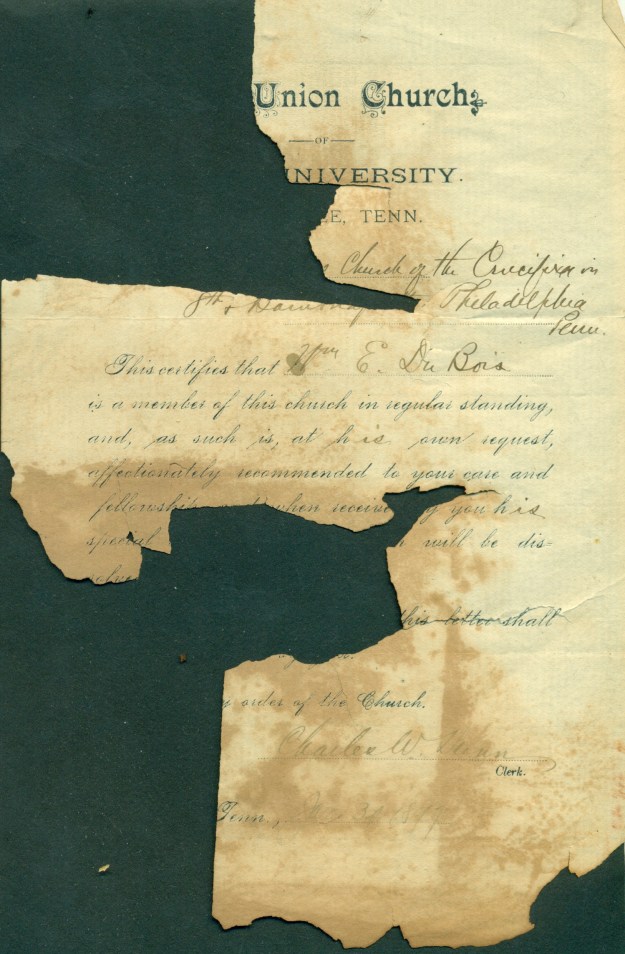 Union Church
OF
NIVERSITY.
E, TENN.
Church of the Crucifixion
8th & Philadelphia
Penn.
This certifies that Wm E. Du Bois
is a member of this church in regular standing,
and, as such is, at his own request,
affectionately recommended to your care and
fellowship when receive g you his
special will be dis=
olve
this letter shall
order of the Church.
Charles W.
Clerk.
Tenn.,